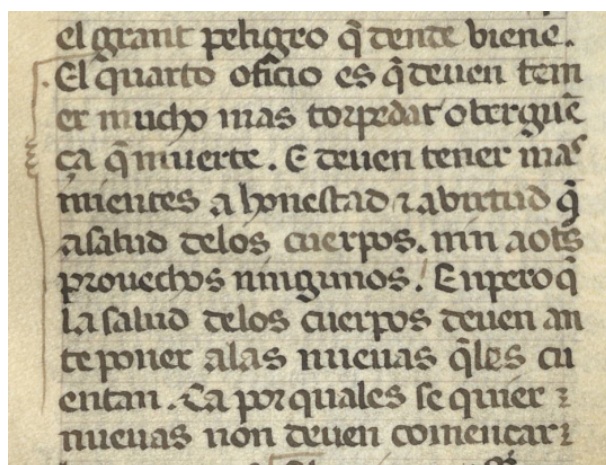 el grant peligro q̃ dende biene.
El quarto ofiçio es q̃ deuen tem
er mucho mas torpedat o berguẽ
ça q̃ muerte. E deuen tener mas
mientes a honestad ⁊ a birtud q̃
a salud delos cuerpos. nin a otͦs
prouechos ningunos. Enpero q̃
la salud delos cuerpos deuen an
te poner alas nueuas q̃ les cu
entan. Ca por quales se quier
nueuas non deuen comencar